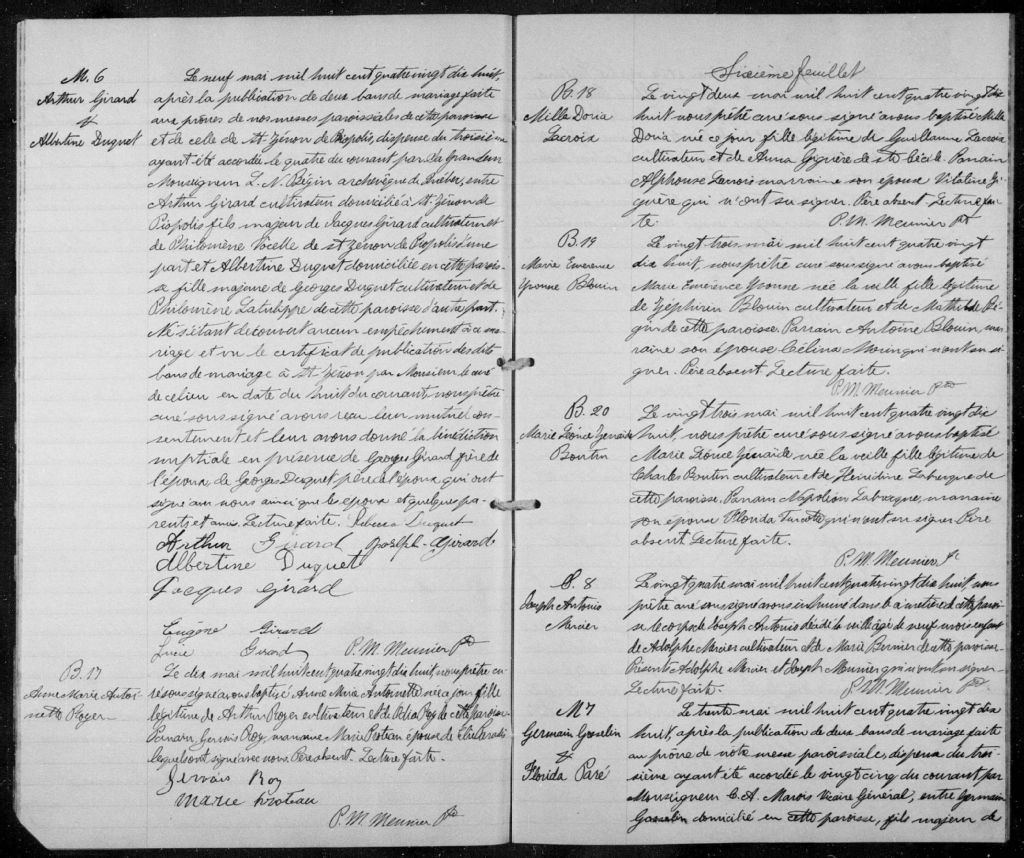 M. 6
Arthur Girard
&
Albertine Duguet
Le neuf mai mil huit cent quatre vingt dix huit,
après la publication de deux bans de mariage faite
aux prônes de nos messes paroissiales de cette paroisse
et de celle de St Zénon de Piopolis, dispense du troisième
ayant été accordée le quatre du courant par Sa Grandeur
Monseigneur L. N. Bégin archevêque de Québec, entre
Arthur Girard cultivateur domicilié à St Zénon de
Piopolis fils majeur de Jacques Girard cultivateur et
de Philomène de St Zénon de Piopolis d'une
part et Albertine Duguet domiciliée en cette parois-
se fille majeure de Georges Duguet cultivateur et de
Philomène Latulippe de cette paroisse d'autre part.
Ne s'étant découvert aucun empêchement à ce ma-
riage et vu le certificat de publication des dits
bans de mariage à St Zénon par Monsieur le curé
de ce lieu en date du huit du courant nous prêtre
curé soussigné avons reçu leur mutuel con-
sentement et leur avons donné la bénédiction
nuptiale en présence de Georges Girard frère de
l'époux, de Georges Duguet père de l'épouse, qui ont
signé avec nous ainsi que les époux et quelques pa-
rents et amis. Lecture faite. Rebecca Duguet
Arthur Girard Joseph Girard
Albertine Duguet
Jacques Girard
Eugène Girard
Lucie Girard P. M. Meunier Ptre
B. 17
Anne Marie Antoi-
nette Royer
Le dix mai mil huit cent quatre vingt dix huit, nous prêtre cu-
ré soussigné avons baptisé Anne Marie Antoinette née ce jour fille
légitime de Arthur Royer cultivateur et de Délia Roy de cette paroisse
Parrain, Gervais Roy, marraine Marie Proteau épouse de
lesquels ont signé avec nous. Père absent. Lecture faite.
Gervais Roy
Marie Proteau
P. M. Meunier Ptre
Sixième feuillet
B. 18
Mille Doria
Lacroix
Le vingt deux mai mil huit cent quatre vingt dix
huit nous prêtre curé soussigné avons baptisé Mille
Doria née ce jour fille légitime de Guillaume Lacroix
cultivateur et de Anna Giguère de Ste Cécile. Parrain
Alphonse Lacroix marraine son épouse Vitaline Gi-
guère qui n'ont su signer. Père absent. Lecture fai-
te. P. M. Meunier Ptre
B. 19
Marie Emerence
Yvonne Blouin
Le vingt trois mai mil huit cent quatre vingt
dix huit, nous prêtre curé soussigné avons baptisé
Marie Emerence Yvonne née la veille fille légitime
de Zéphirin Blouin cultivateur et de Mathilde Bé-
gin de cette paroisse. Parrain Antoine Blouin, mar-
raine son épouse Célina Morin qui n'ont su si-
gner. Père absent. Lecture faite.
P. M. Meunier Ptre
B. 20
Marie Léonce Géraide
Boutin
Le vingt trois mai mil huit cent quatre vingt dix
huit, nous prêtre curé soussigné avons baptisé
Marie Léonce Géraide née la veille fille légitime de
Charles Boutin cultivateur et de Labergne de
cette paroisse. Parrain Napoléon Labergne, marraine
son épouse Florida Turcotte qui n'ont su signer. Père
absent Lecture faite.
P. M. Meunier Ptre
S. 8
Joseph Antonio
Mercier
Le vingt quatre mai mil huit cent quatre vingt dix huit, nous
prêtre curé soussigné avons inhumé dans le cimetière de cette parois-
se le corps de Joseph Antonio décédé la veille âgé de neuf mois enfant
de Adolphe Mercier cultivateur et de Marie Bernier de cette paroisse.
Présents Adolphe Mercier et Joseph Meunier qui n'ont su signer.
Lecture faite. P. M. Meunier Ptre
M 7
Germain Gosselin
&
Florida Paré
Le trente mai mil huit cent quatre vingt dix
huit, après la publication de deux bans de mariage faite
au prône de notre messe paroissiale, dispense du troi-
sième ayant été accordée le vingt cinq du courant par
Monseigneur C. A. Marois Vicaire Général, entre Germain
Gosselin domicilié en cette paroisse, fils majeur de